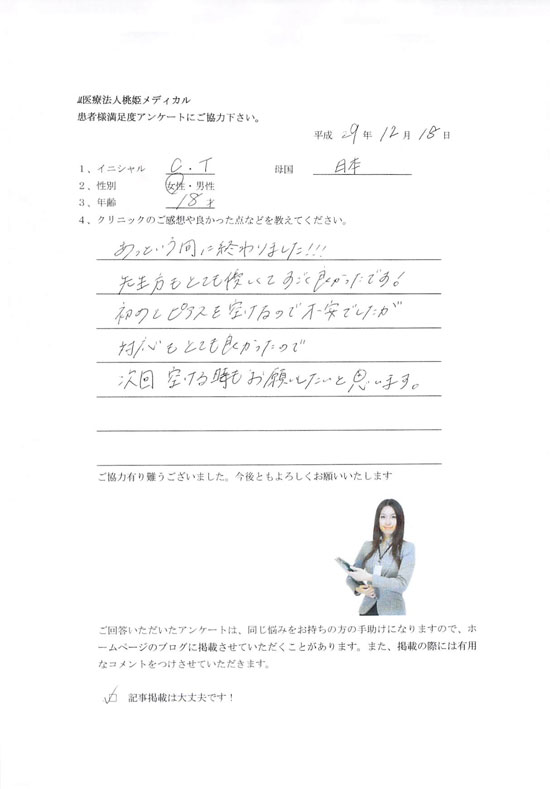 医療法人桃姫メディカル
患者様満足度アンケートにご協力下さい。
平成 29 年 12 月 18 日
1、イニシャル C.T 母国 日本
2、性別 女性・男性
3、年齢 18才
4、クリニックのご感想や良かった点などを教えてください。
あっという間に終わりました!!!
先生方もとても優しくてすごく良かったです!
初めてピアスを空けるので不安でしたが
対応もとても良かったので
次回 空ける時もお願いしたいと思います。
ご協力有り難うございました。今後ともよろしくお願いいたします
ご回答いただいたアンケートは、同じ悩みをお持ちの方の手助けになりますので、ホ
ームページのブログに掲載させていただくことがあります。また、掲載の際には有用
なコメントをつけさせていただきます。
☑ 記事掲載は大丈夫です!